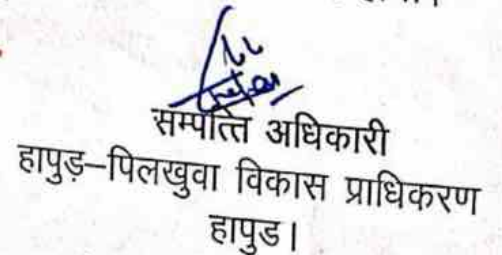 सम्पत्ति अधिकारी
हापुड़–पिलखुवा विकास प्राधिकरण
हापुड।